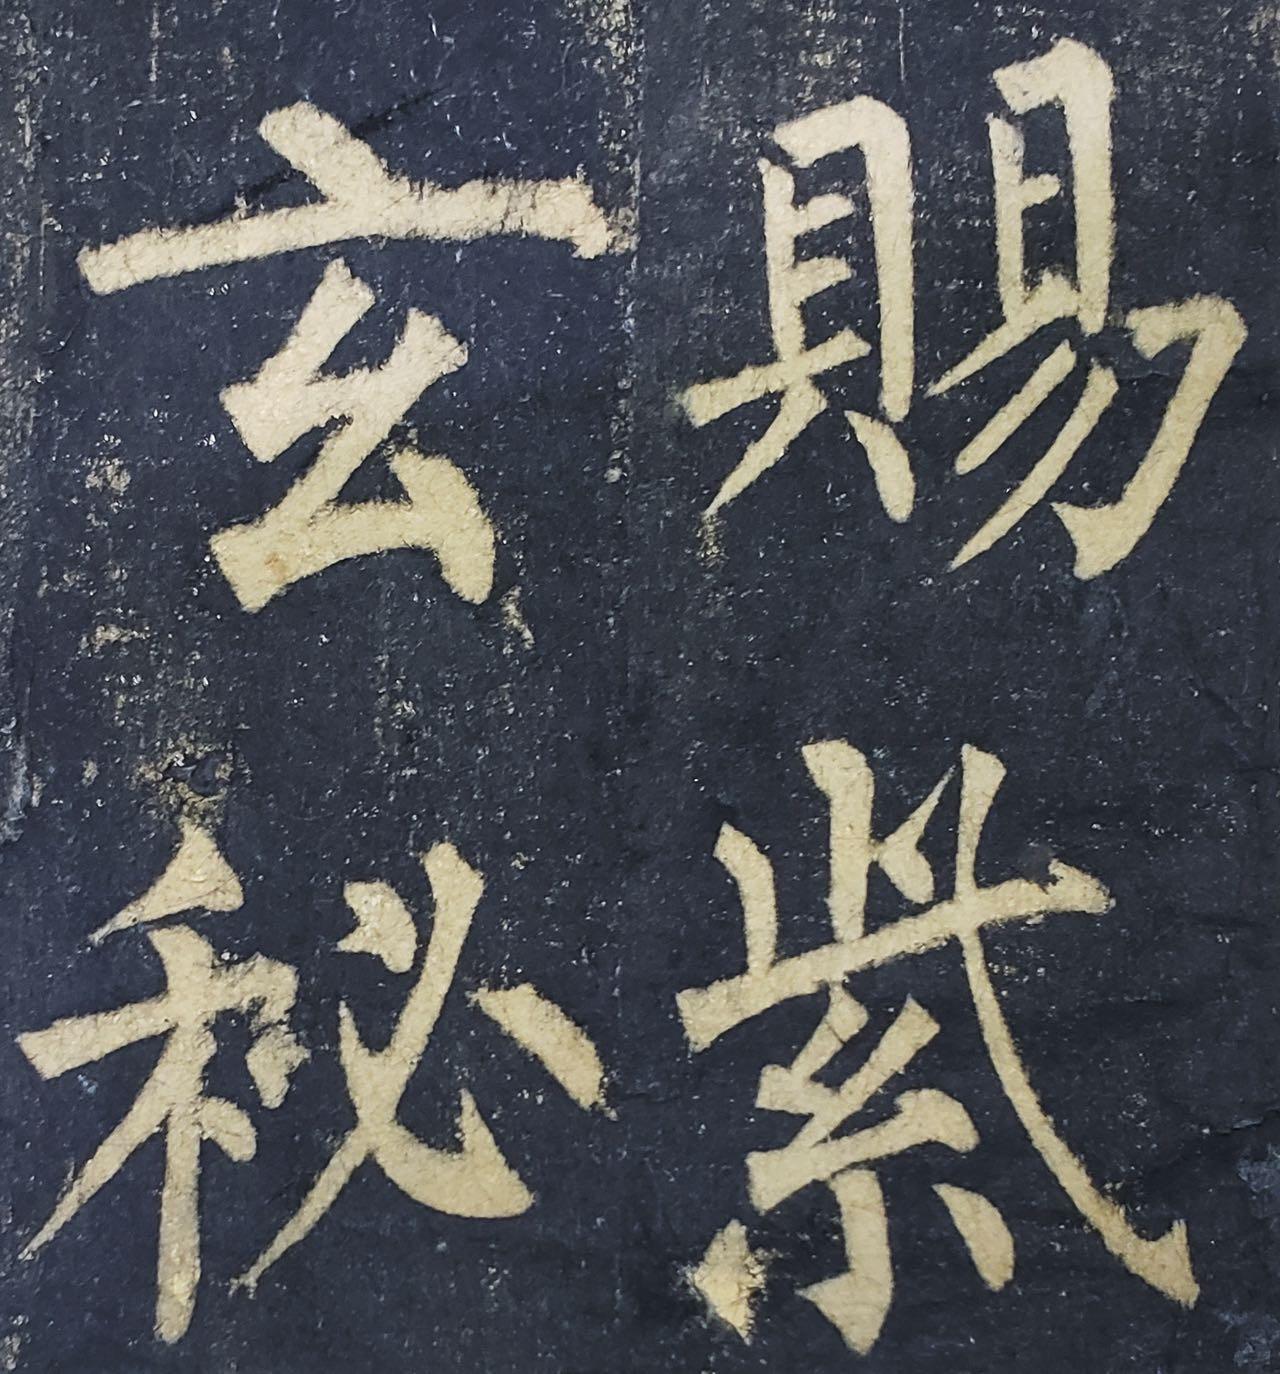 賜紫
玄秘